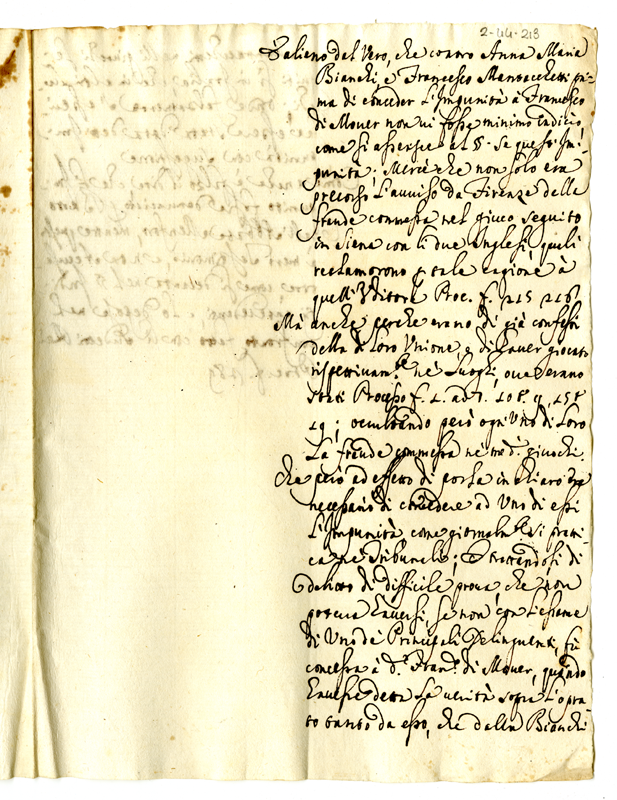 2-44-213
È alieno dal Vero, che contro Anna Maria
Bianchi, e Francesco Mansacchetti pri-
ma di conceder l'Impunità à Francesco
di Mouer non ui fosse minimo indizio
come si asserisce al §. Se questi Im-
punità; Mercè che non solo era
precorso l'auuiso da Firenze delle
fraude commessa nel giuco seguito
in Siena con li due Inglesi, quali
reclamorono p tale cagione à
quell'Auditore Proc. f. 215 216
Mà anche perche erano di già confessi
della di Loro Unione, e di hauer giocato
rispettiuam.te ne Luoghi, oue erano
stati Processo f. 1. ad 7. 108. 157
19; occultando però ogni Uno di Loro
La fraude commessa ne med.i giuochi.
Che però ad effetto di porla in chiaro era
necessario di concedere ad Uno di essi
L'Impunità, come giornalm.te si prati-
ca ne Tribunali; E trattandosi di
Delitto di difficile prova che non
poteua hauersi, se non con l'esame
di Uno de Principali Delinquenti, fù
concessa à d.o Fran.co di Mouer, quando
hauesse detta La verità sopra L'opra
to tanto da esso, che dalla Bianchi